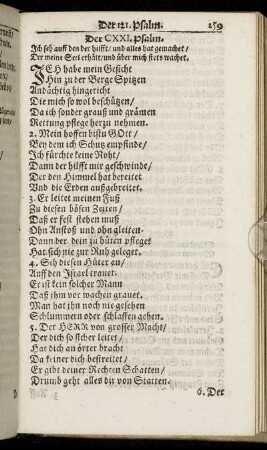 Der 121. Psalm. 259
Der CXXI. Psalm.
Ich seh auff den der hilfft / und alles hat gemachet /
Der meine Seel erhält / und über mich stets wachet.
ICH habe mein Gesicht
Hin zu der Berge Spitzen
Andächtig hingericht
Die mich so wol beschützen /
Da ich sonder grauß und grämen
Rettung pflege her zu nehmen.
2. Mein hoffen bistu GOtt /
Bey dem ich Schutz empfinde /
Ich fürchte keine Noht /
Dann der hilfft mir geschwinde /
Der den Himmel hat bereitet
Und die Erden außgebreitet.
3. Er leitet meinen Fuß
Zu diesen bösen Zeiten /
Daß er fest stehen muß
Ohn Anstoß und ohn gleiten.
Dann der dein zu hüten pfleget
Hat sich nie zur Ruh geleget.
4. Sih diesen Hüter an /
Auff den Israel trauet.
Er ist kein solcher Mann
Daß ihm vor wachen grauet.
Man hat ihn noch nie gesehen
Schlummern oder schlaffen gehen.
5. Der HERR von grosser Macht /
Der dich so sicher leitet /
Hat dich an ört er bracht
Da keiner dich bestreitet /
Er gibt deiner Rechten Schatten /
Drumb geht alles dir von Statten.
6. Der